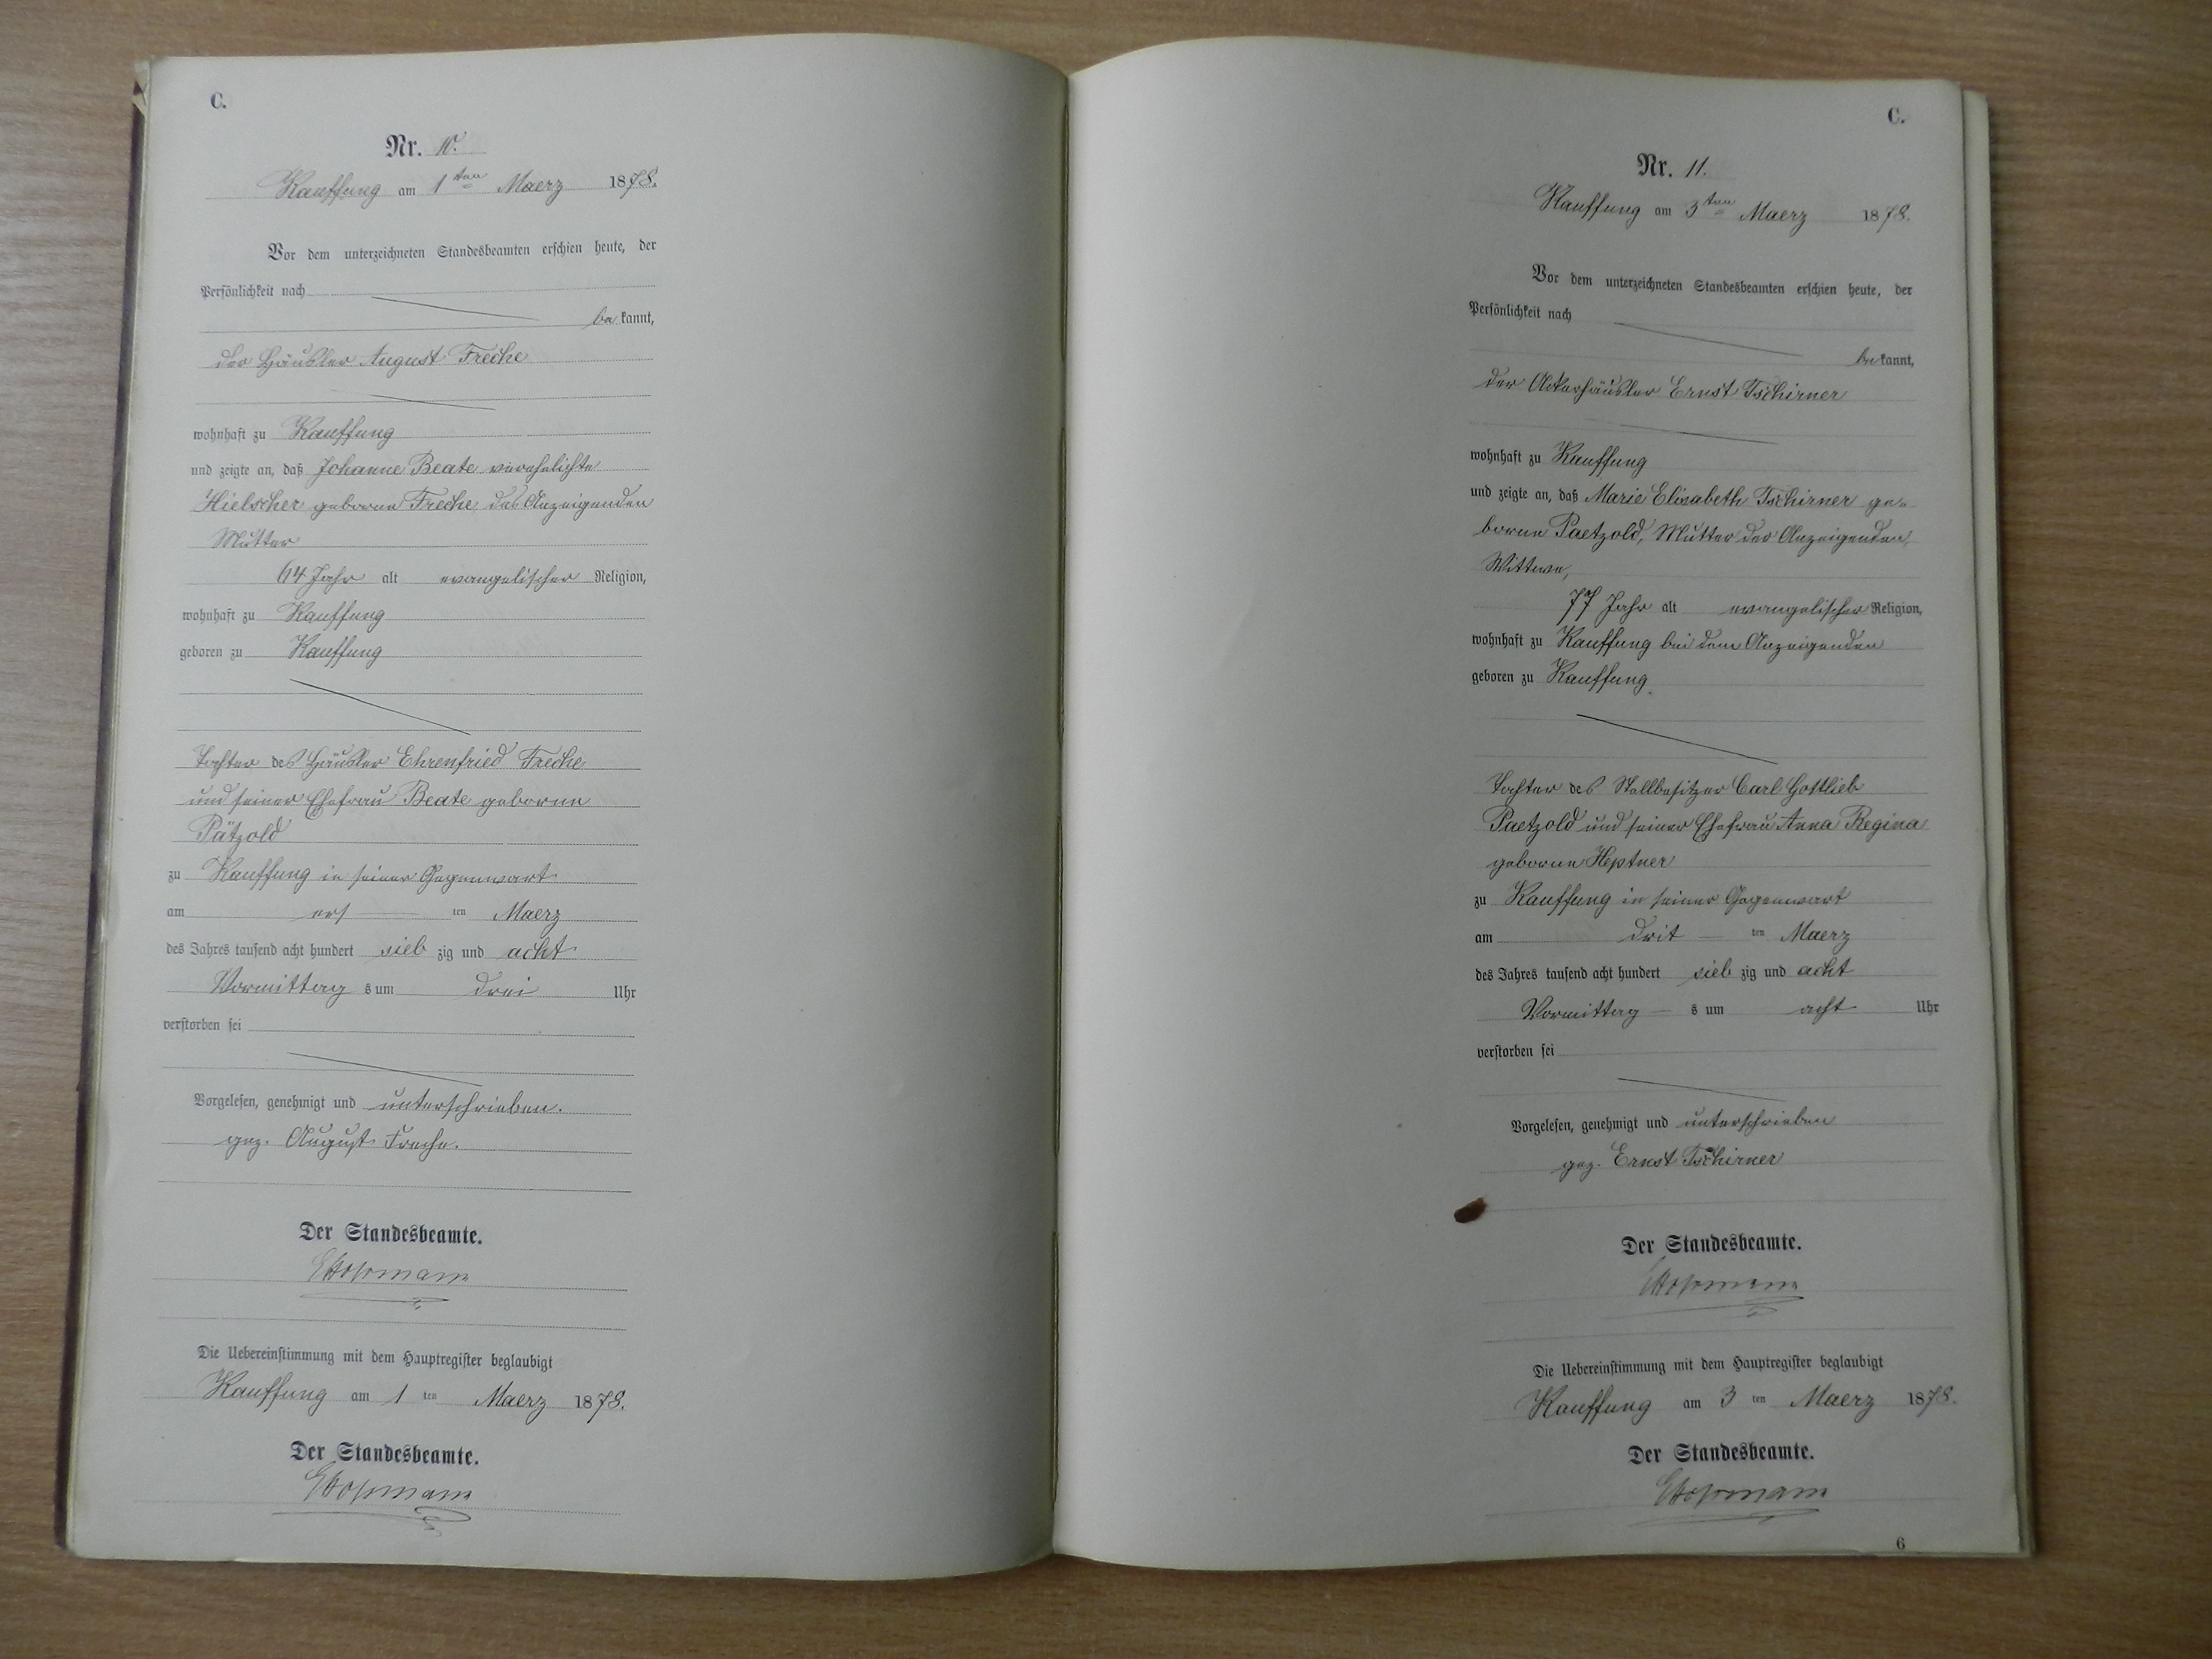 C.
Nr. 10.
Kauffung am 1ten Maerz 1878.
Vor dem unterzeichneten Standesbeamten erschien heute, der
Persönlichkeit nach
be kannt,
der Häusler August Freche
wohnhaft zu Kauffung
und zeigte an, daß Johanne Beate verehelichte
Hielscher geborne Freche, des Anzeigenden
Mutter
64 Jahr alt evangelischer Religion,
wohnhaft zu Kauffung
geboren zu Kauffung
Tochter des Häusler Ehrenfried Freche
und seiner Ehefrau Beate geborne
Pätzold
zu Kauffung in seiner Gegenwart
am ers ten Maerz
des Jahres tausend acht hundert sieb zig und acht
Vormittag s um drei Uhr
verstorben sei
Vorgelesen, genehmigt und unterschrieben.
gez. August Freche.
Der Standesbeamte.
Die Uebereinstimmung mit dem Hauptregister beglaubigt
Kauffung am 1 ten Maerz 1878.
Der Standesbeamte.
C.
Nr. 11.
Kauffung am 3ten Maerz 1878.
Vor dem unterzeichneten Standesbeamten erschien heute, der
Persönlichkeit nach
be kannt,
der Ackerhäusler Ernst Tschirner
wohnhaft zu Kauffung
und zeigte an, daß Marie Elisabeth Tschirner ge-
borne Paetzold, Mutter des Anzeigenden,
Wittwe,
77 Jahr alt evangelischer Religion,
wohnhaft zu Kauffung bei dem Anzeigenden
geboren zu Kauffung.
Tochter des Stellbesitzer Carl Gottlieb
Paetzold und seiner Ehefrau Anna Regina
geborne Heptner
zu Kauffung in seiner Gegenwart
am drit ten Maerz
des Jahres tausend acht hundert sieb zig und acht
Vormittag s um acht Uhr
verstorben sei
Vorgelesen, genehmigt und unterschrieben
gez. Ernst Tschirner
Der Standesbeamte.
Die Uebereinstimmung mit dem Hauptregister beglaubigt
Kauffung am 3 ten Maerz 1878.
Der Standesbeamte.
6